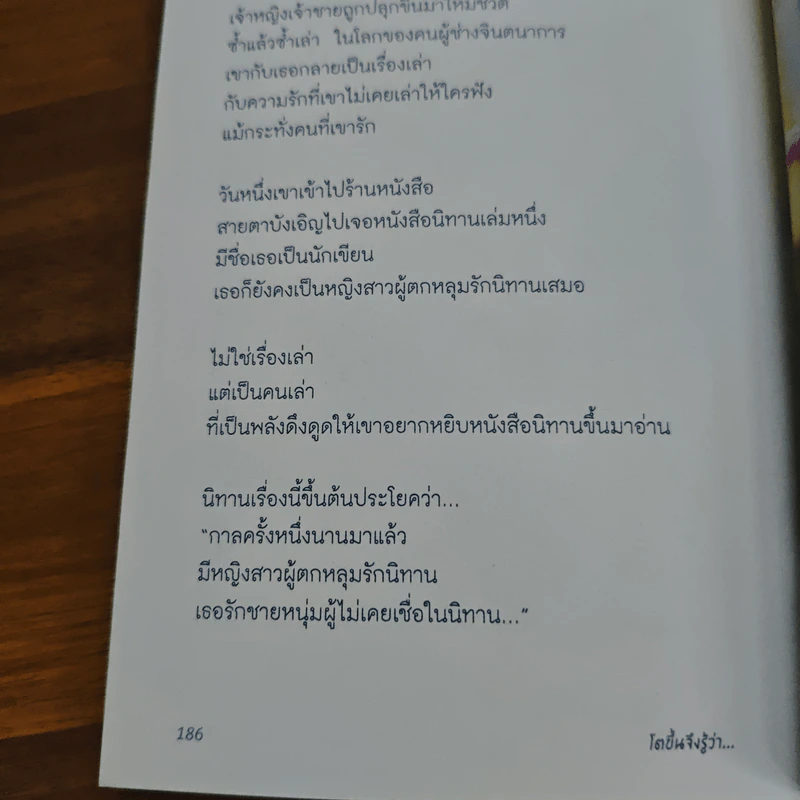 เจ้าหญิงเจ้าชายถูกปลุกขึ้นมาใหม่ชีวิต
ซ้ำแล้วซ้ำเล่า ในโลกของคนผู้ช่างจินตนาการ
เขากับเธอกลายเป็นเรื่องเล่า
กับความรักที่เขาไม่เคยเล่าให้ใครฟัง
แม้กระทั่งคนที่เขารัก
วันหนึ่งเขาเข้าไปร้านหนังสือ
สายตาบังเอิญไปเจอหนังสือนิทานเล่มหนึ่ง
มีชื่อเธอเป็นนักเขียน
เธอก็ยังคงเป็นหญิงสาวผู้ตกหลุมรักนิทานเสมอ
ไม่ใช่เรื่องเล่า
แต่เป็นคนเล่า
ที่เป็นพลังดึงดูดให้เขาอยากหยิบหนังสือนิทานขึ้นมาอ่าน
นิทานเรื่องนี้ขึ้นต้นประโยคว่า...
"กาลครั้งหนึ่งนานมาแล้ว
มีหญิงสาวผู้ตกหลุมรักนิทาน
เธอรักชายหนุ่มผู้ไม่เคยเชื่อในนิทาน..."
186
โตขึ้นจึงรู้ว่า...